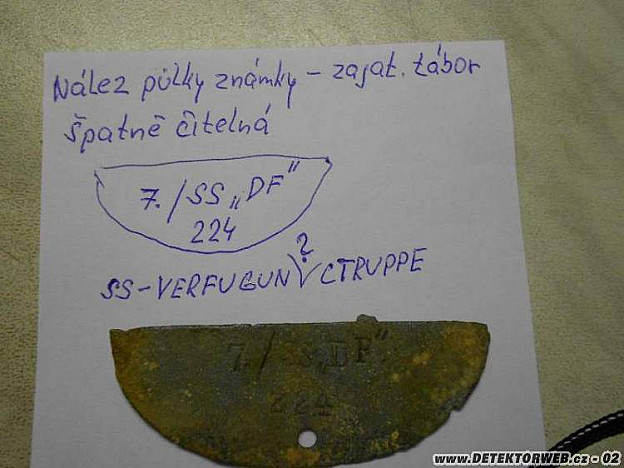 Nález půlky známky - zajat. tábor
špatně čitelná
7./SS „DF"
224
?
SS-VERFUGUNVCTRUPPE
7./SS„DF"
224
www.DETEKTORWEB.cz - 02